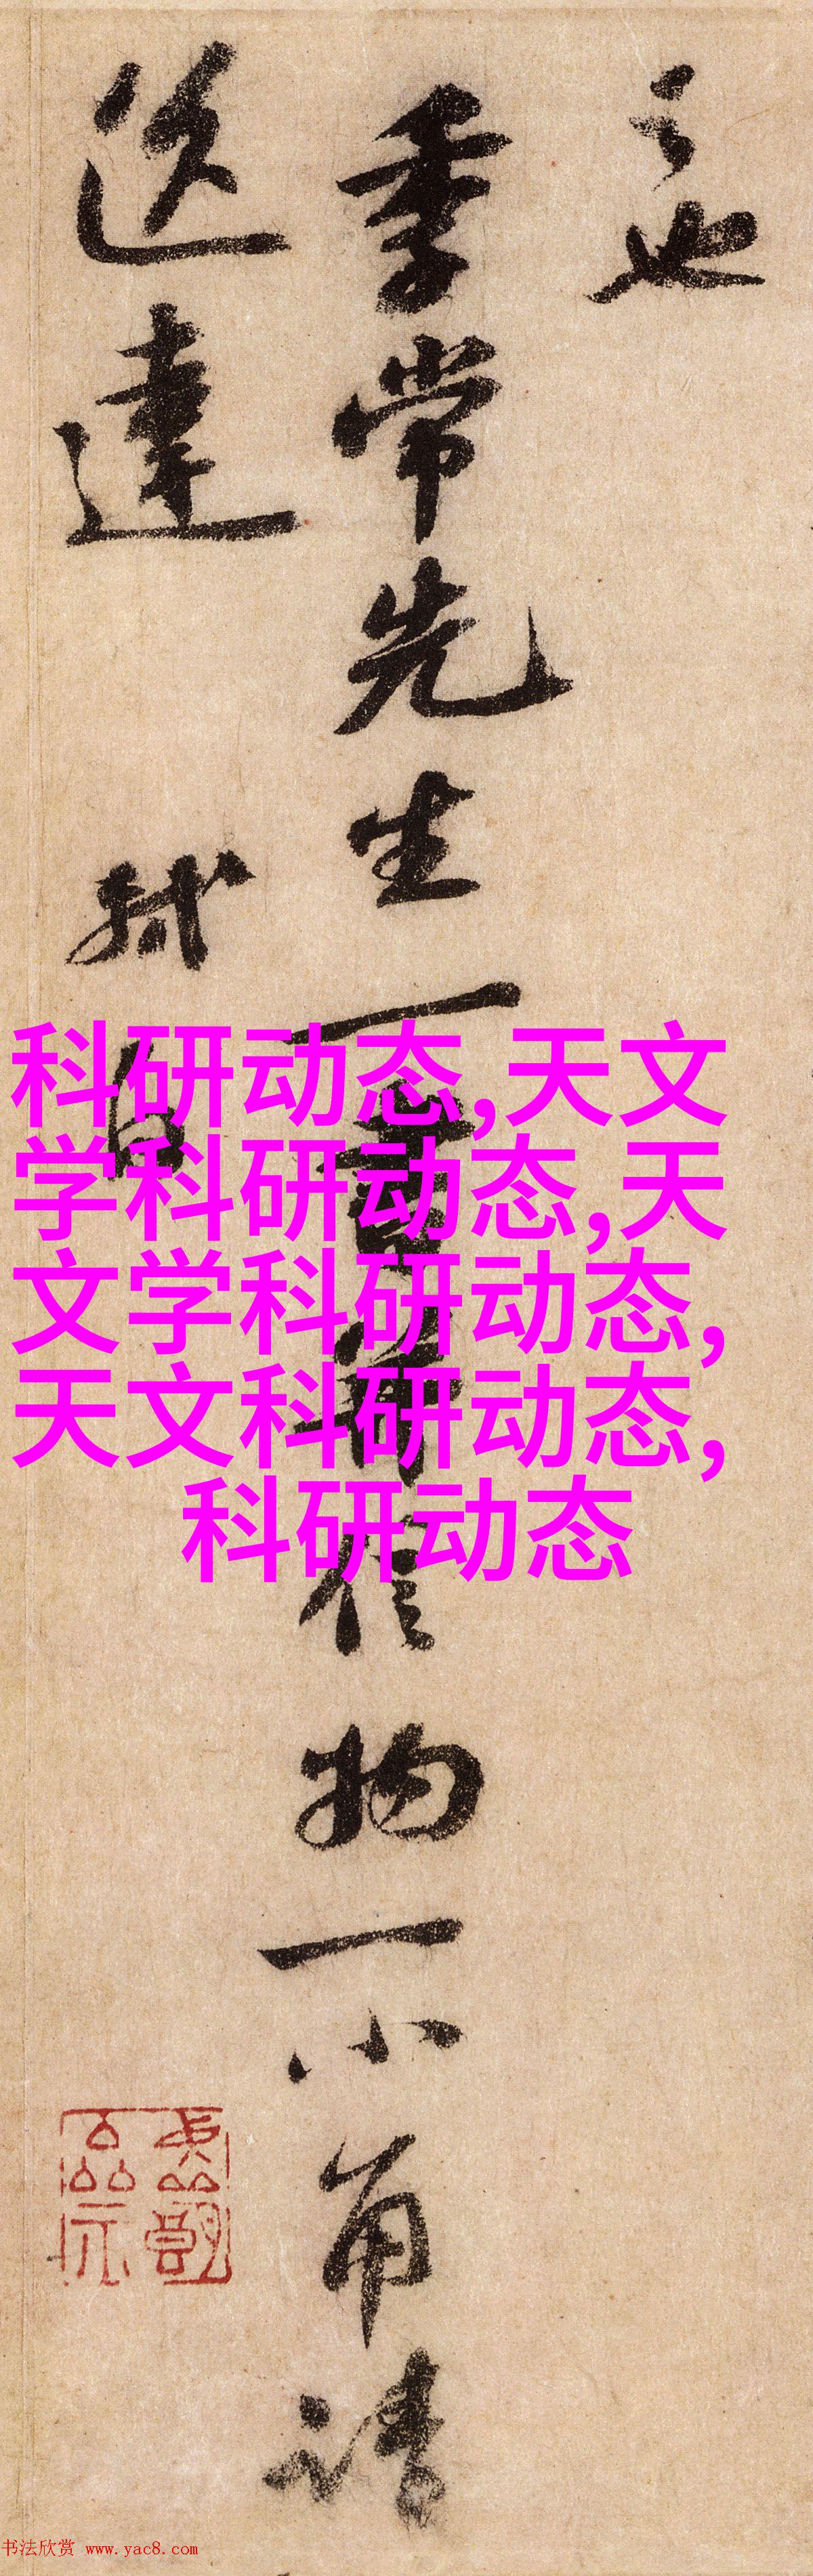 之也
季常先生一書并信物一小角請
送達
軾白
科研动态,天文
学科研动态,天
文学科研动态,
天文科研动态,
科研动态
书法欣赏 www.yac8.com